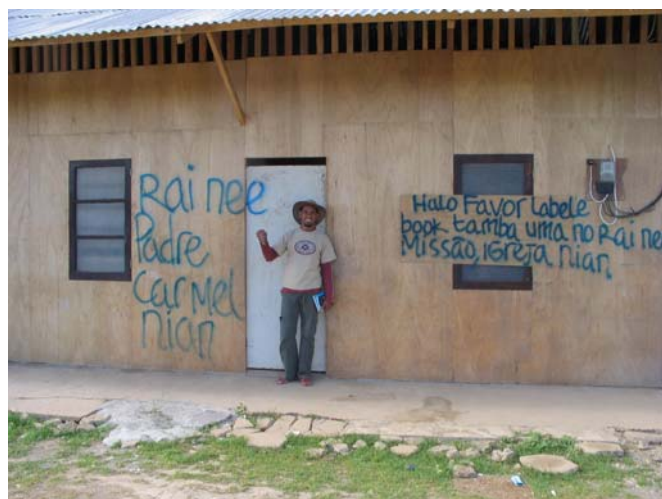 Rai nee
Padre
Carmel
nian
Halo Favor labele
book tamba uma no Rai ne
Missão, igreja nian